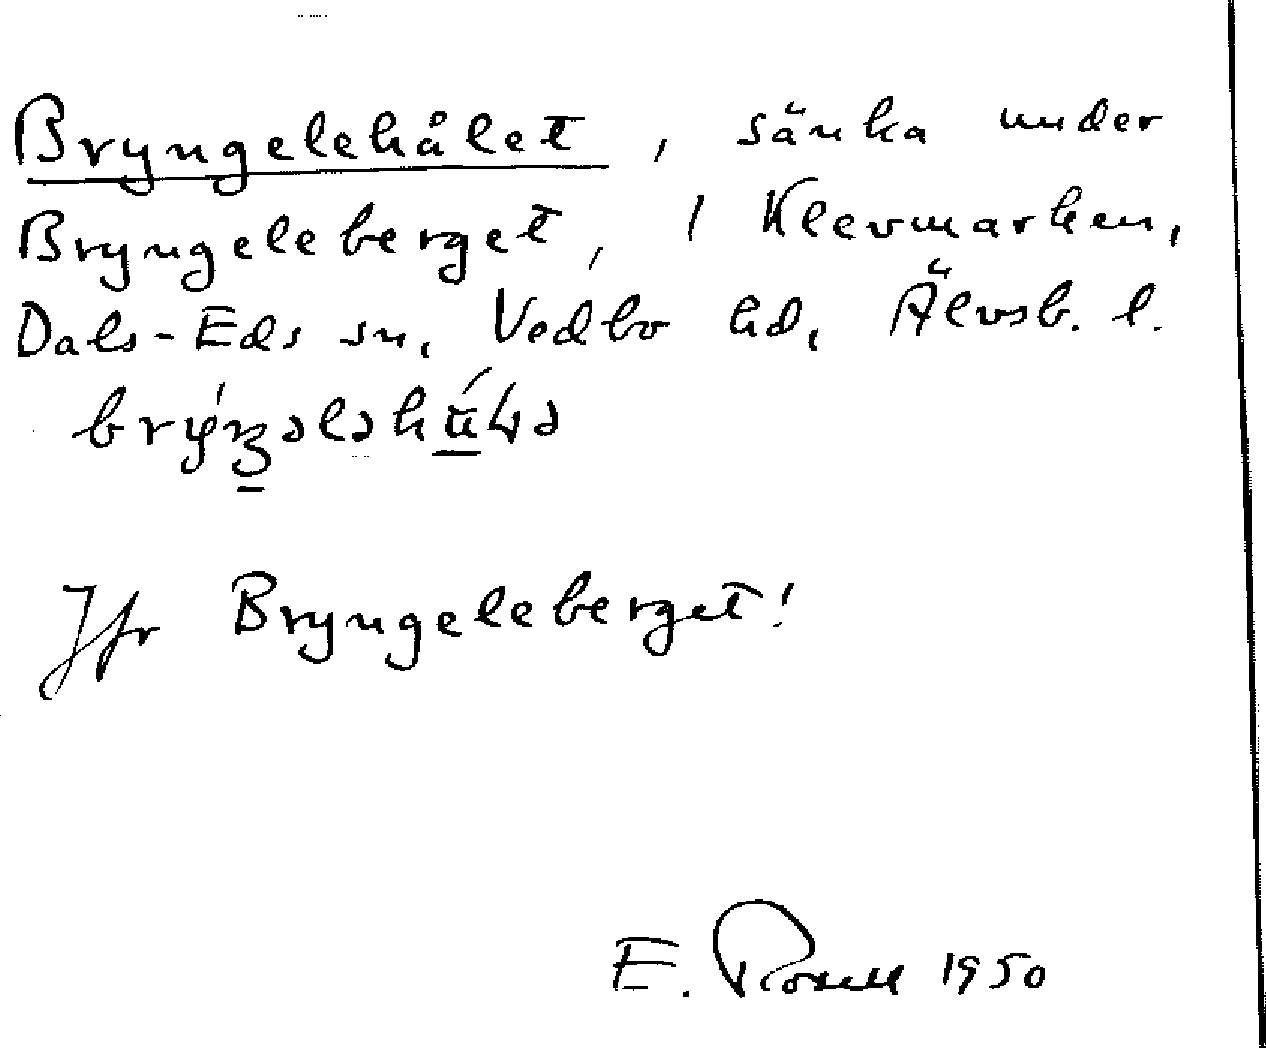 Bryngelehålet, sänka under
Bryngeleberget, i Klevmarken,
Dals-Eds sn, Vedbo hd, Älvsb. l.
Jfr Bryngeleberget!
E. Rosell 1950